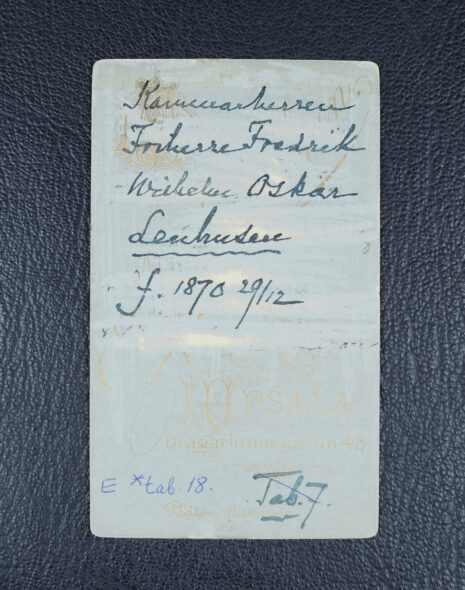 Kammarherren
Friherre Fredrik
Wilhelm Oskar
Leuhusen
f. 1870 29/12
UPSALA
Dragarbrunnsgatan 48
E *tab. 18.
Tab. 7.